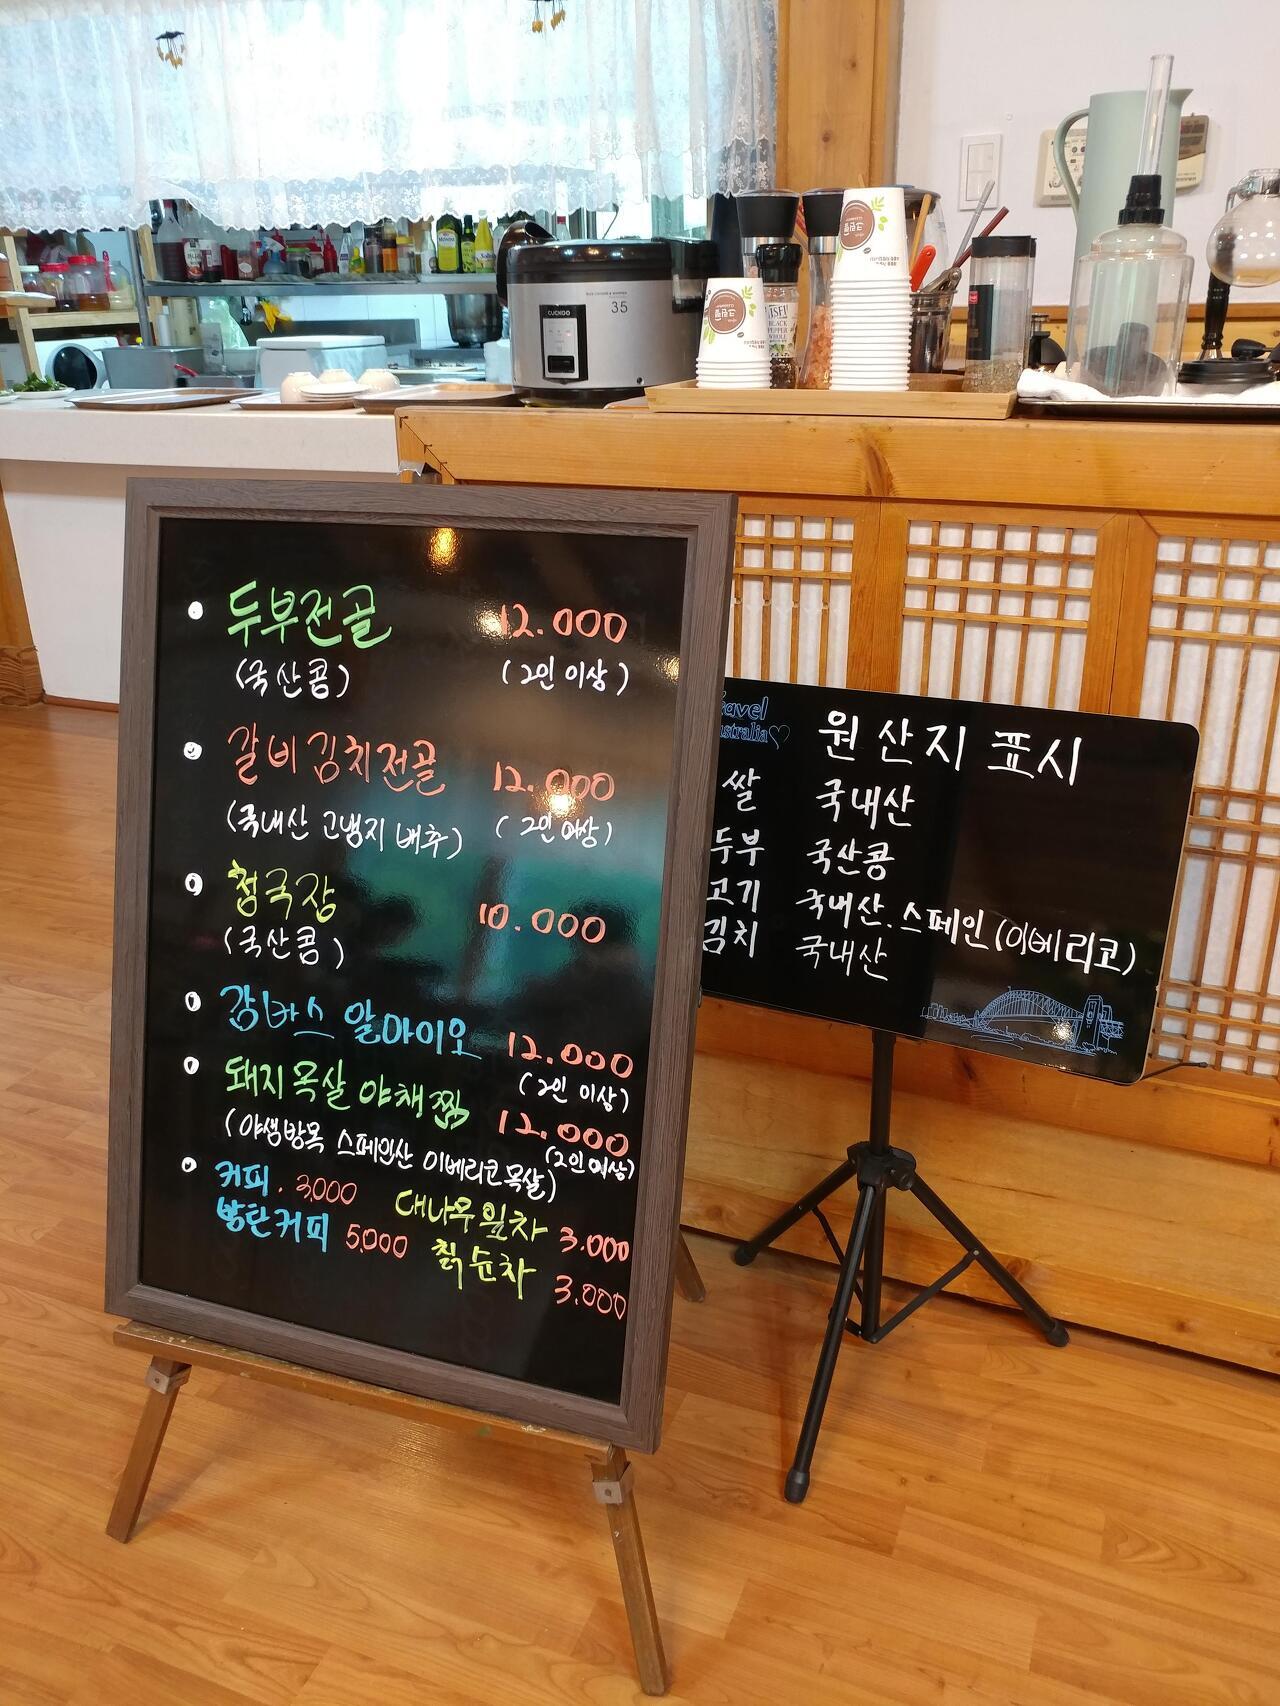 두부전골 12.000
(국산콩) (2인 이상)
갈비김치전골 12.000
(국내산 고냉지 배추) (2인 이상)
청국장 10.000
(국산콩)
감바스 알아이오 12.000
(2인 이상)
돼지목살 야채찜 12.000
(야생방목 스페인산 이베리코목살) (2인 이상)
커피. 3,000 대나무잎차 3.000
방탄커피 5,000 칡순차 3.000
원산지 표시
쌀 국내산
두부 국산콩
고기 국내산. 스페인(이베리코)
김치 국내산
CUCKOO
35